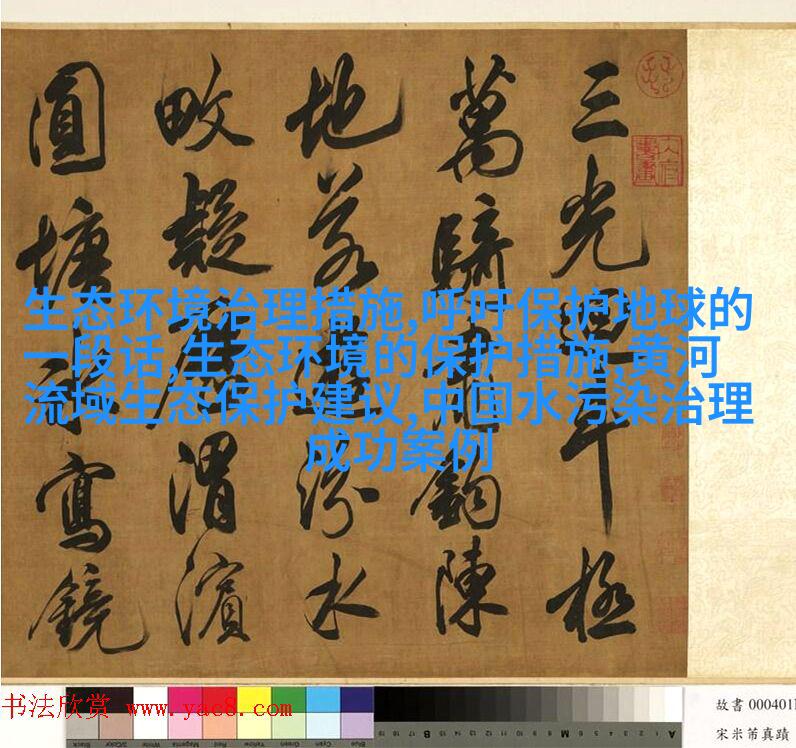 三光迴斗極
萬騎肅鉤陳
地若遊汾水
畋疑歷渭濱
圓塘冰寫鏡
生态环境治理措施,呼吁保护地球的
一段话,生态环境的保护措施,黄河
流域生态保护建议,中国水污染治理
成功案例
书法欣赏 www.yac8.com
故書 000401
宋米芾真蹟